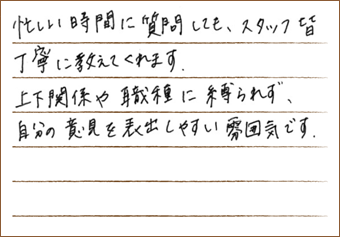 忙しい時間に質問しても、スタッフ皆
丁寧に教えてくれます.
上下関係や職種に縛られず、
自分の意見を表出しやすい雰囲気です.